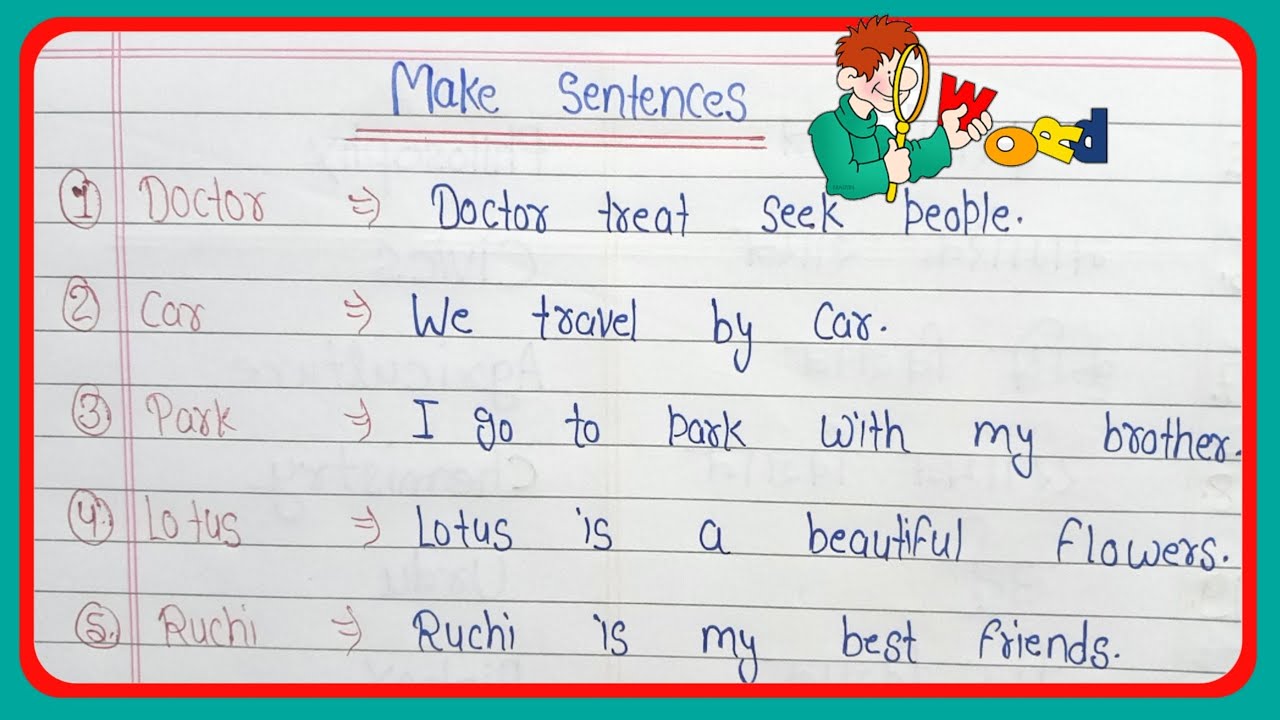 Make Sentences
WORD
① Doctor ⇒ Doctor treat seek people.
② Car ⇒ We travel by Car.
③ Park ⇒ I go to park with my brother.
④ Lotus ⇒ Lotus is a beautiful flowers.
⑤ Ruchi ⇒ Ruchi is my best friends.